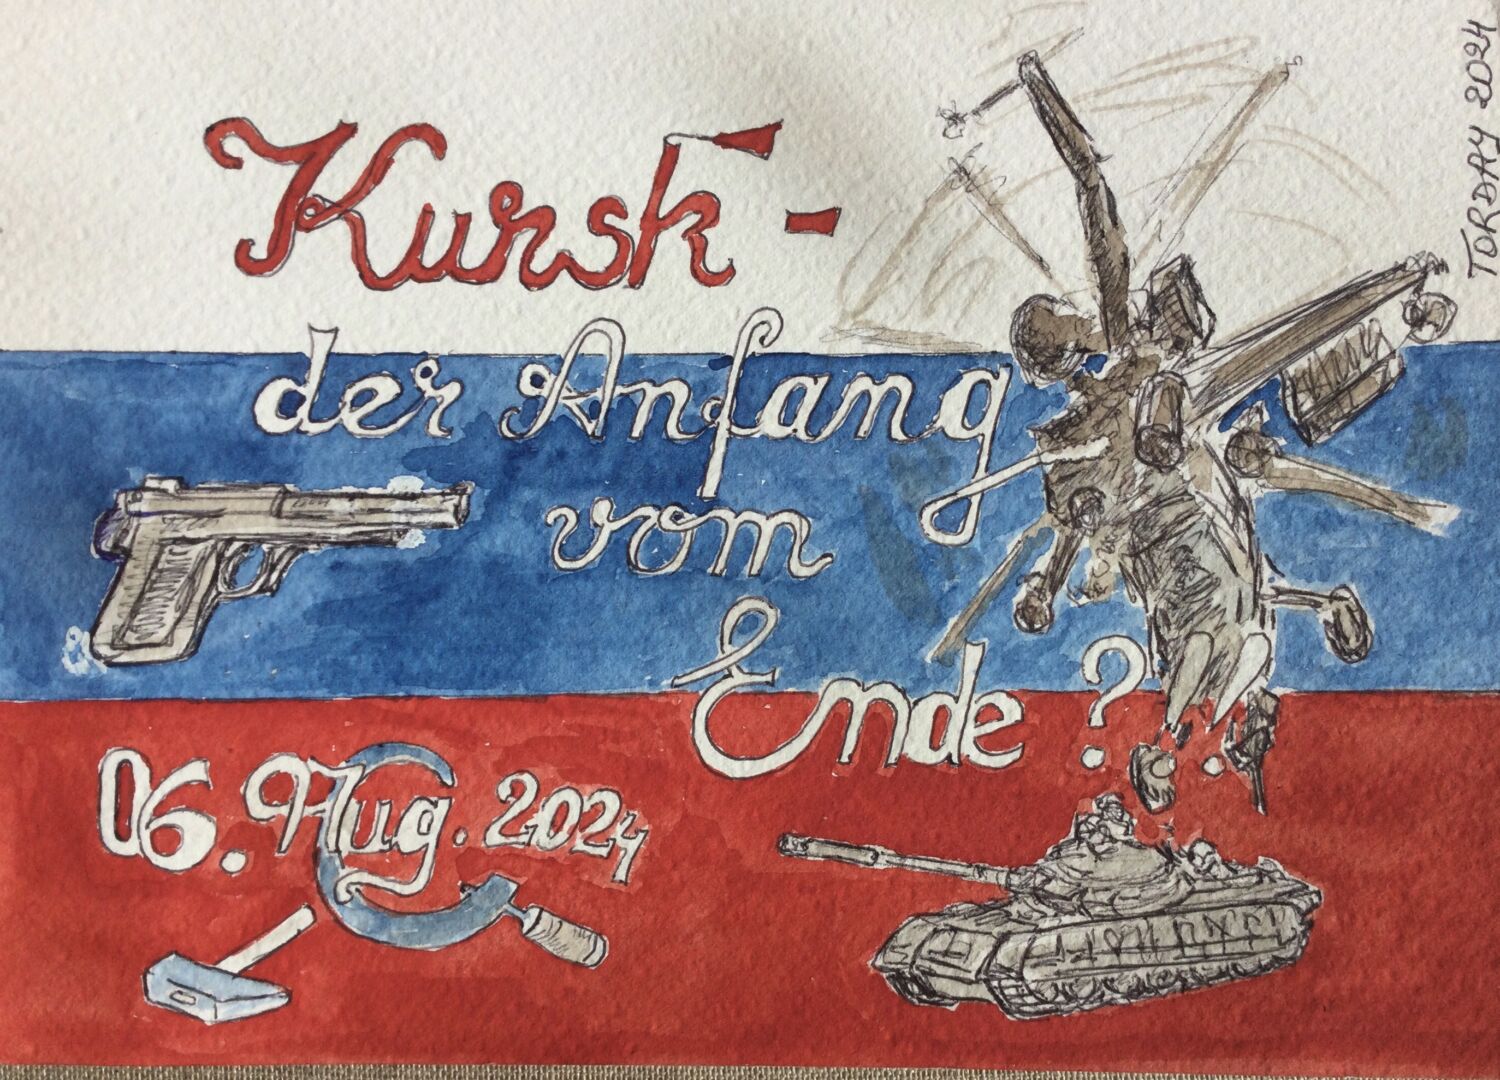 Kursk -
der Anfang
vom
Ende ?
06. Aug. 2024
TORDAY 2024